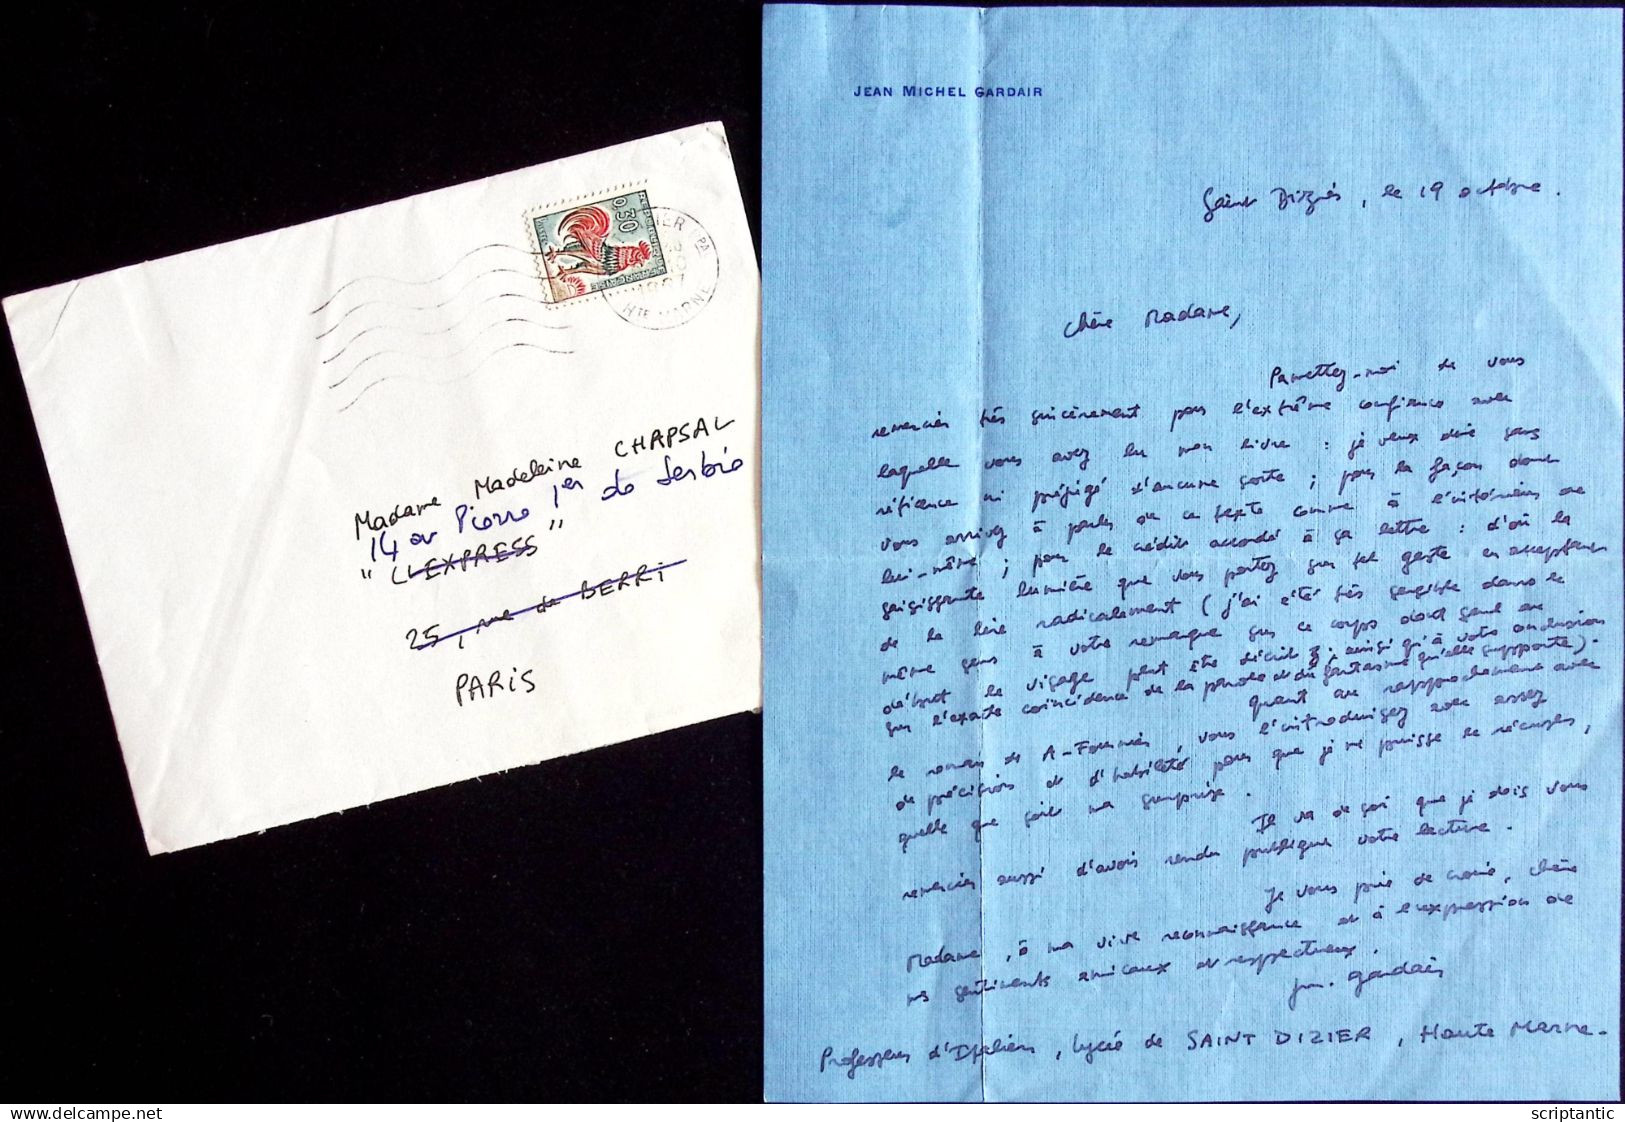 0,30
REPUBLIQUE FRANCAISE
HTE MARNE
Madame Madeleine CHAPSAL
14 av Pierre 1er de Serbie
"L'EXPRESS"
25, rue de BERRI
PARIS
JEAN MICHEL GARDAIR
Saint Dizier, le 19 octobre.
Chère Madame,
Permettez-moi de vous
remercier très sincèrement pour l'extrême confiance avec
laquelle vous avez lu mon livre : je veux dire sans
réticence ni préjugé d'aucune sorte ; pour la façon dont
vous arrivez à parler de ce texte comme à l'intérieur de
lui-même ; pour le crédit accordé à sa lettre : d'où la
saisissante lumière que vous portez sur tel geste en acceptant
de le lire radicalement (j'ai été très sensible dans le
même sens à votre remarque sur ce corps dont seul au
début le visage peut être décrit ; ainsi qu'à votre conclusion
sur l'exacte coïncidence de la parole et du fantasme qu'elle supporte).
Quant au rapprochement avec
le roman de A-Fournier, vous l'introduisez avec assez
de précision et d'habileté pour que je ne puisse le récuser,
quelle que soit ma surprise.
Il va de soi que je dois vous
remercier aussi d'avoir rendu publique votre lecture.
Je vous prie de croire, chère
Madame, à ma vive reconnaissance et à l'expression de
mes sentiments amicaux et respectueux.
jm. Gardair
Professeur d'Italien, lycée de SAINT DIZIER, Haute Marne.
scriptantic